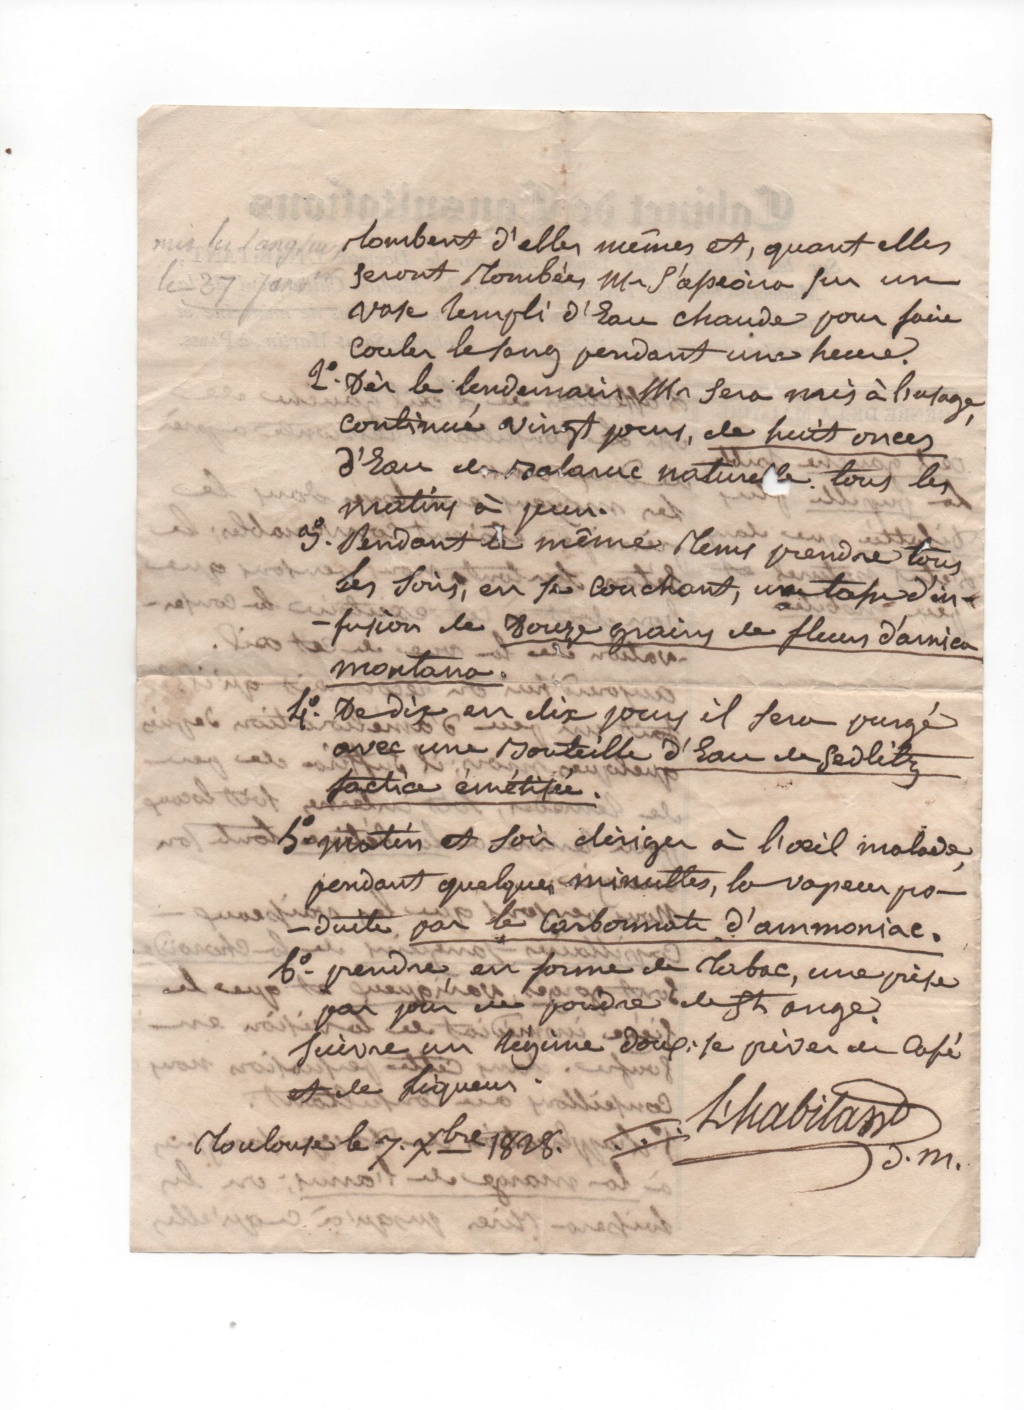 mis les sangsues
le 27 Janv
tombent d'elles mêmes et, quant elles
seront tombées Mr s'asseoira sur un
vase rempli d'Eau chaude pour faire
couler le sang pendant une heure.
2°. Dès le lendemain Mr sera mis à l'usage,
continué vingt jours, de huit onces
d'Eau de Balaruc naturelle tous les
matins à jeun.
3°. Pendant le même tems prendre tous
les soirs, en se couchant, une tasse d'in-
-fusion de Douze grains de fleurs d'arnica
montana.
4°. De dix en dix jours il sera purgé
avec une Bouteille d'Eau de Sedlitz
factice émétisée.
5° matin et soir diriger à l'œil malade,
pendant quelques minuttes, la vapeur pro-
-duite par le Carbonnate d'ammoniac.
6°- prendre en forme de Tabac, une prise
par jour de poudre de St ange.
Suivre un régime doux, se priver de Café
et de liqueur.
Toulouse le 7. Xbre 1828.
Lhabitant
d. m.